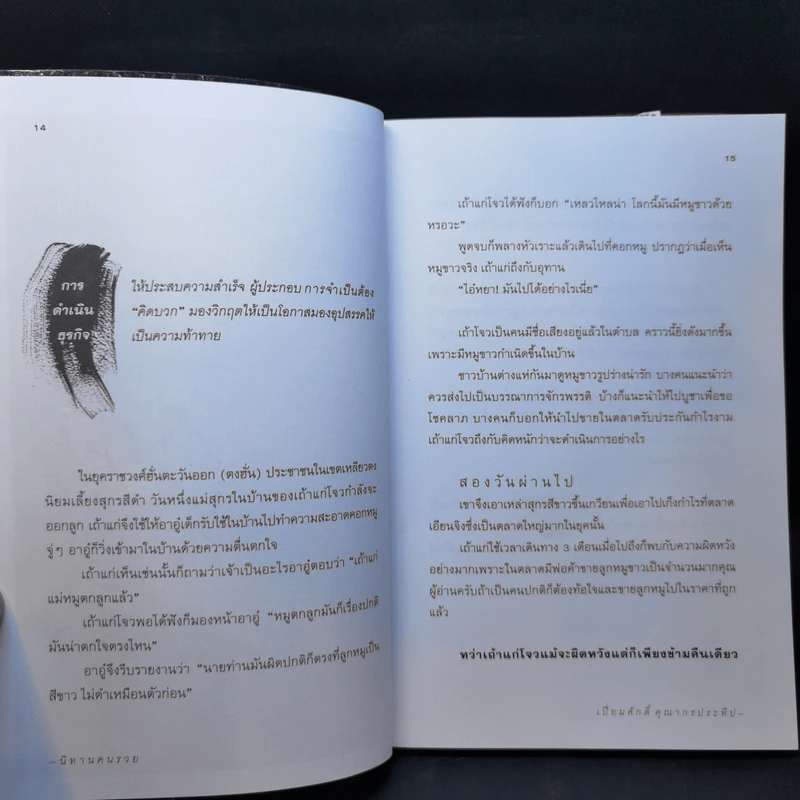 14
การ
ดำเนิน
ธุรกิจ
ให้ประสบความสำเร็จ ผู้ประกอบ การจำเป็นต้อง
“คิดบวก” มองวิกฤตให้เป็นโอกาสมองอุปสรรคให้
เป็นความท้าทาย
ในยุคราชวงศ์ฮั่นตะวันออก (ตงฮั่น) ประชาชนในเขตเหลียวตง
นิยมเลี้ยงสุกรสีดำ วันหนึ่งแม่สุกรในบ้านของเถ้าแก่โจวกำลังจะ
ออกลูก เถ้าแก่จึงใช้ให้อาอู๋เด็กรับใช้ในบ้านไปทำความสะอาดคอกหมู
จู่ๆ อาอู๋ก็วิ่งเข้ามาในบ้านด้วยความตื่นตกใจ
เถ้าแก่เห็นเช่นนั้นก็ถามว่าเจ้าเป็นอะไรอาอู๋ตอบว่า “เถ้าแก่
แม่หมูตกลูกแล้ว”
เถ้าแก่โจวพอได้ฟังก็มองหน้าอาอู๋ “หมูตกลูกมันก็เรื่องปกติ
มันน่าตกใจตรงไหน”
อาอู๋จึงรีบรายงานว่า “นายท่านมันผิดปกติก็ตรงที่ลูกหมูเป็น
สีขาว ไม่ดำเหมือนตัวก่อน”
–นิทานคนรวย
15
เถ้าแก่โจวได้ฟังก็บอก “เหลวไหลน่า โลกนี้มันมีหมูขาวด้วย
หรอวะ”
พูดจบก็พลางหัวเราะแล้วเดินไปที่คอกหมู ปรากฏว่าเมื่อเห็น
หมูขาวจริง เถ้าแก่ถึงกับอุทาน
“ไอ่หยา! มันไปได้อย่างไรเนี่ย”
เถ้าแก่โจวเป็นคนมีชื่อเสียงอยู่แล้วในตำบล คราวนี้ยิ่งดังมากขึ้น
เพราะมีหมูขาวกำเนิดขึ้นในบ้าน
ชาวบ้านต่างแห่กันมาดูหมูขาวรูปร่างน่ารัก บางคนแนะนำว่า
ควรส่งไปเป็นบรรณาการจักรพรรดิ บ้างก็แนะนำให้ไปบูชาเพื่อขอ
โชคลาภ บางคนก็บอกให้นำไปขายในตลาดรับประกันกำไรงาม
เถ้าแก่โจวถึงกับคิดหนักว่าจะดำเนินการอย่างไร
สองวันผ่านไป
เขาจึงเอาเหล่าสุกรสีขาวขึ้นเกวียนเพื่อเอาไปเก็งกำไรที่ตลาด
เอียนจิงซึ่งเป็นตลาดใหญ่มากในยุคนั้น
เถ้าแก่ใช้เวลาเดินทาง 3 เดือนเมื่อไปถึงก็พบกับความผิดหวัง
อย่างมากเพราะในตลาดมีพ่อค้าขายลูกหมูขาวเป็นจำนวนมากคุณ
ผู้อ่านครับถ้าเป็นคนปกติก็ต้องท้อใจและขายลูกหมูไปในราคาที่ถูก
แล้ว
ทว่าเถ้าแก่โจวแม้จะผิดหวังแต่ก็เพียงข้ามคืนเดียว
เปี่ยมศักดิ์ คุณากรประทีป–